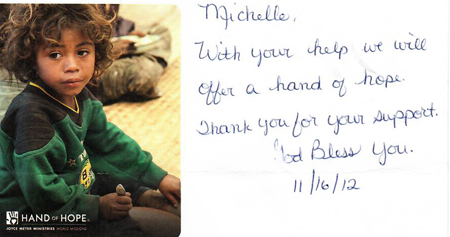 Michelle,
With your help we will
offer a hand of hope.
Thank you for your support.
God Bless You.
11/16/12
HAND OF HOPE
JOYCE MEYER MINISTRIES WORLD MISSIONS